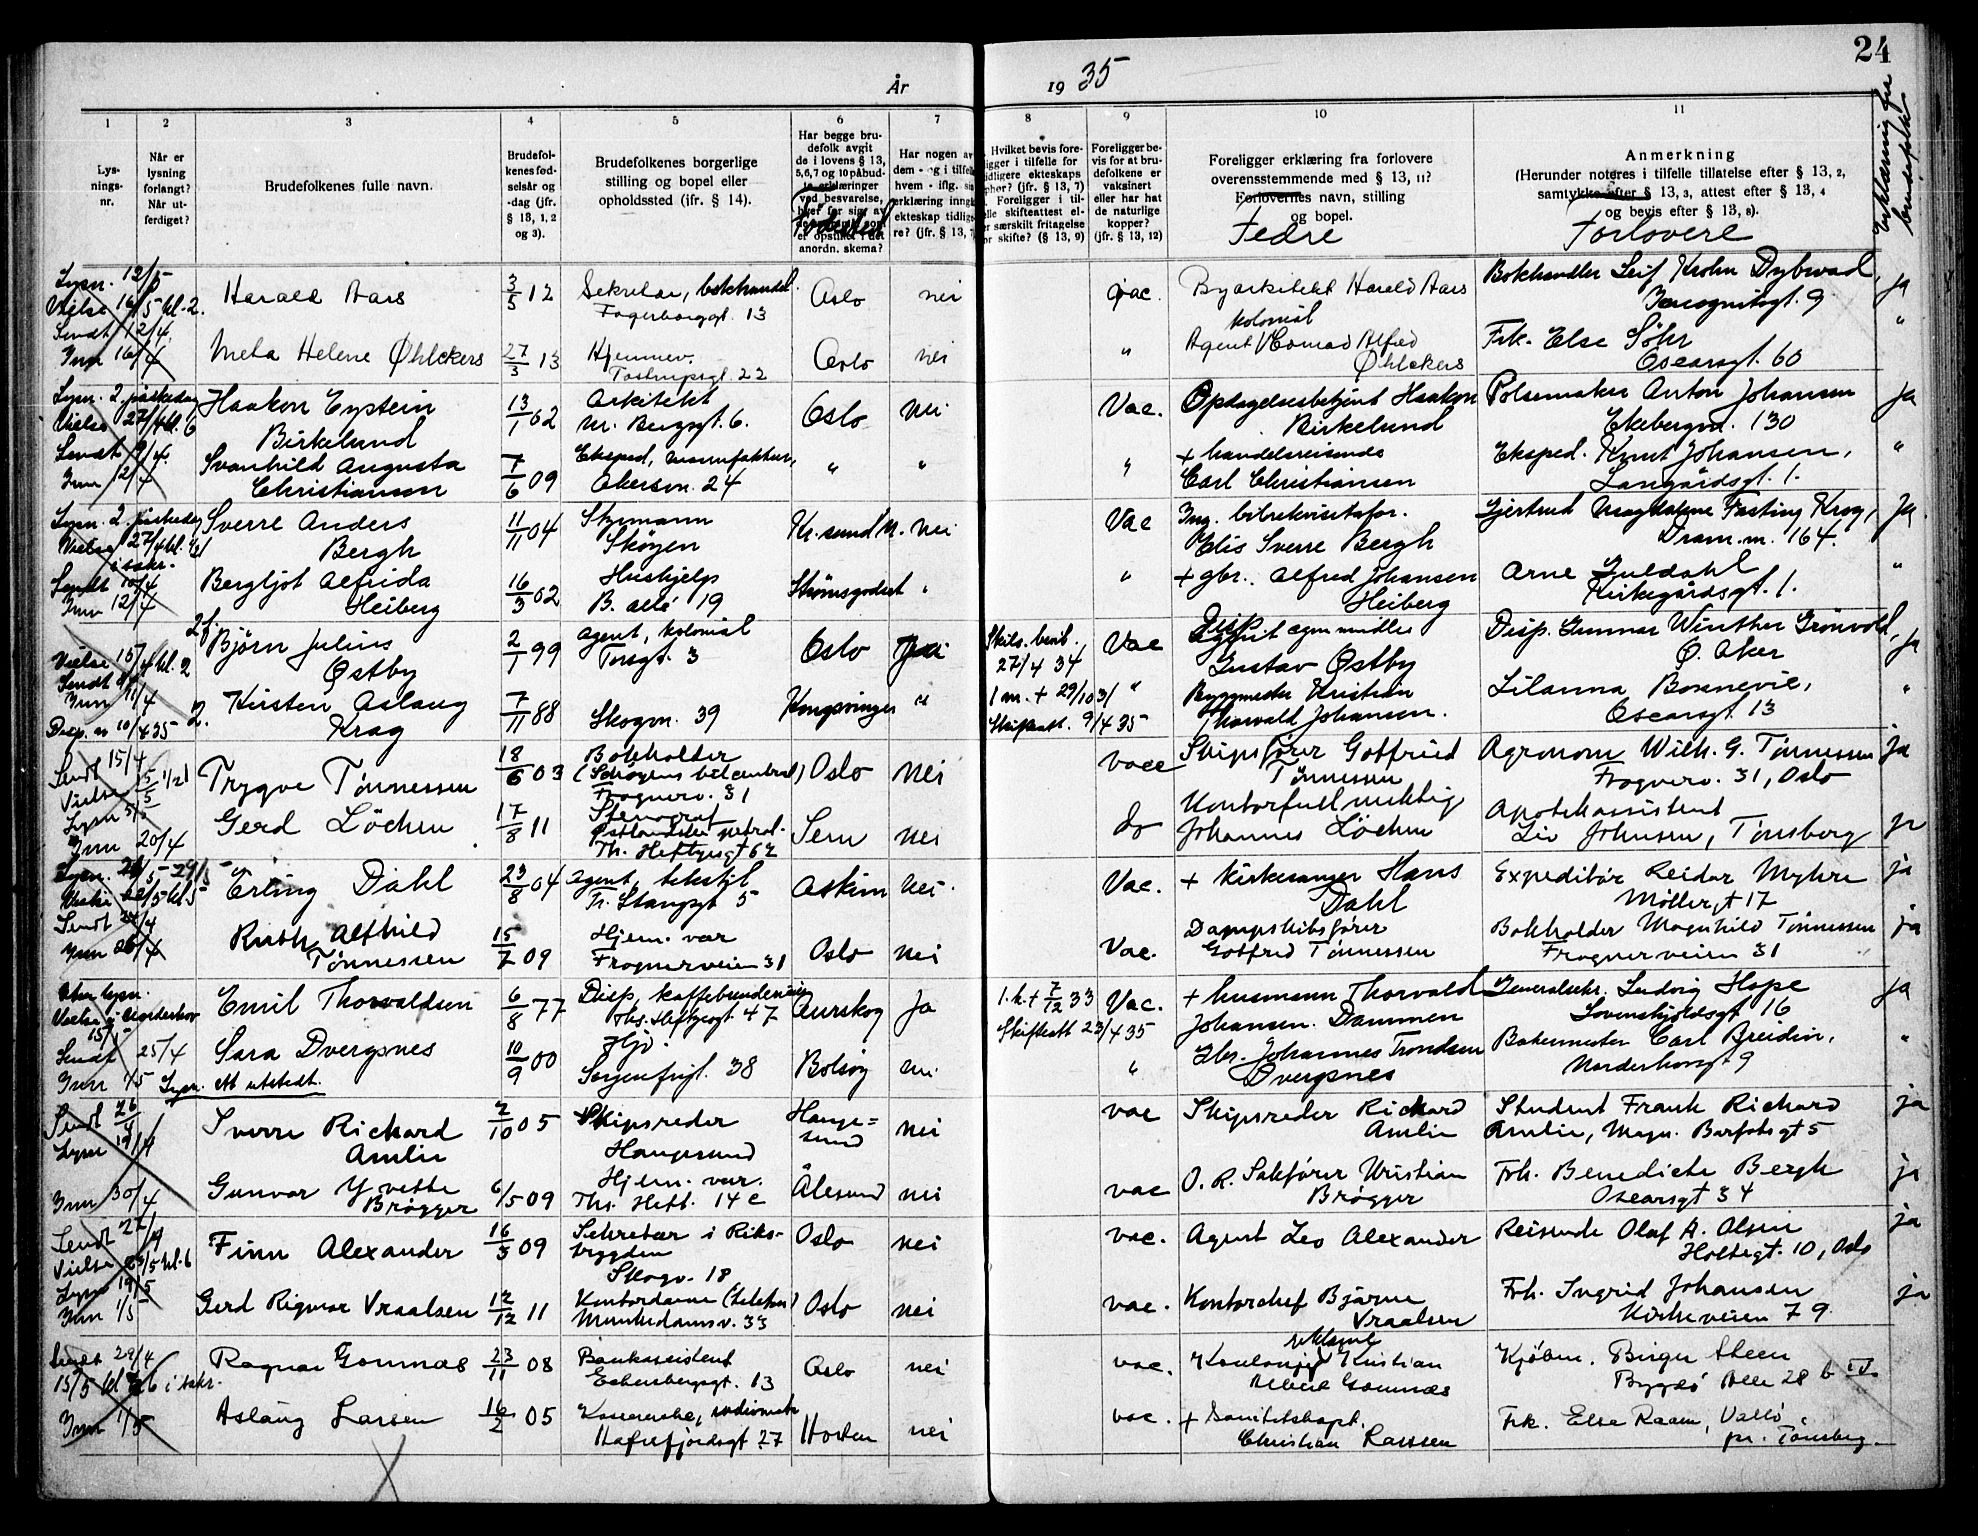 24
År
19 35
Erklæring fra
brudefolk
1
2
3
4
5
6
7
8
9
10
11
Lys-
nings-
nr.
Når er
lysning
forlangt?
Når ut-
ferdiget?
Brudefolkenes fulle navn.
Brudefol-
kenes fød-
selsår og
-dag (jfr.
§ 13, 1, 2
og 3).
Brudefolkenes borgerlige
stilling og bopel eller
opholdssted (jfr. § 14).
Har begge bru-
defolk avgit
de i lovens § 13,
5, 6, 7 og 10 påbud-
te erklæringer
ved besvarelse,
hver for sig av
anordn. skema?
Fødested
Har nogen av
dem - og i tilfelle
hvem - iflg. sin
erklæring inngått
ekteskap tidlige-
re? (jfr. § 13, 7
Hvilket bevis fore-
ligger i tilfelle for
tidligere ekteskaps
opher? (jfr. § 13, 7)
Foreligger i til-
felle skifteattest el-
er særskilt fritagelse
for skifte? (§ 13, 9)
Foreligger be-
vis for at bru-
defolkene er
vaksinert
eller har hat
de naturlige
kopper?
(jfr. § 13, 12)
Foreligger erklæring fra forlovere
overensstemmende med § 13, 11?
Forlovernes navn, stilling
og bopel.
Fedre
Anmerkning
(Herunder noteres i tilfelle tillatelse efter § 13, 2,
samtykke efter § 13, 3, attest efter § 13, 4
og bevis efter § 13, 8).
Forlovere
Lysn. 12/5
Vielse 16/5 kl. 2.
Sendt 12/4.
Inn 16/4
Harald Aars
3/5 12
Sekretær, bokhandel.
Fagerborggt. 13
Oslo
nei
vac.
Byarkitekt Harald Aars
Bokhandler Leif Krohn Dybwad,
Incognitogt. 9
ja
Meta Helene Øhlckers
27/3 13
Hjemmev.
Tostrupsgt. 22
Oslo
nei
"
kolonial
Agent Conrad Alfred
Øhlckers
Frk. Else Söhr
Oscarsgt. 60
"
Lysn. 2. påskedag
Vielse 27/4 kl. 6
Sendt 9/4.
Inn 12/4
Haakon Eystein
Birkelund
13/1 02
Arkitekt
M. Bergsgt. 6.
Oslo
Nei
Vac.
Opdagelsesbetjent Haakon
Birkelund
Pølsemaker Anton Johansen
Ekebergvn. 130
Ja
Svanhild Augusta
Christiansen
7/6 09
Eksped, manufaktur,
Akersvn. 24
"
"
"
+ handelsreisende
Carl Christiansen
Eksped. Knut Johansen,
Langårdsgt. 1.
"
Lysn. 2. påskedag
Vielse 27/4 kl.
i sakr.
Sendt 10/4
Inn 12/4
Sverre Anders
Bergh
11/11 04
Styrmann
Skøyen
Kr.sund N.
nei
Vac
Ing. bilrekvisitafor.
Elis Sverre Bergh
Gjertrud Magdalene Fasting Krog,
Dram.m. 164.
Ja.
Bergljot Alfrida
Heiberg
16/3 02
Hushjelp
B. allé 19
Strømsgodset
"
"
+ gbr. Alfred Johansen
Heiberg
Arne Guldahl
Kirkegårdsgt. 1.
"
Vielse 15/4 kl. 2
Inn 11/4
Disp. av 10/4 35
2 f.
Bjørn Julius
Østby
2/1 99
Agent, kolonial
Torsgt. 3
Oslo
Skils. bevil.
27/4 34
Vac
Gustav Østby
Disp. Gunnar Winther Grönvold,
Ø. Aker
ja
2.
Kirsten Aslaug
Krag
7/11 88
Skogvn. 39
Kongsvinger
"
1 m. + 29/10 31
Skifteatt. 9/4 35
"
Byggmester Kristian
Thorvald Johansen.
Lilanna Bonnevie,
Oscarsgt. 13
"
Sendt 15/4
Inn 20/4
Trygve Tönnessen
18/6 03
Bokholder
(Skøyens bilcentral)
Frognerv. 31
Oslo
nei
vacc
Skipsfører Gotfried
Tönnessen
Agronom Wilh. G. Tönnessen
Frognerv. 31, Oslo
ja
Gerd Löchen
17/8 11
Stenograf
Th. Heftyesgt 62
Sem
nei
do
Kontorfullmektig
Johannes Löchen
Apotekassistent
Liv Johnsen, Tönsberg
ja
Sendt 24/4
Inn 26/4
Erling Dahl
23/8 04
Agent, tekstil
Tr. Stangsgt 5
Askim
Nei
Vac.
+ Kirkesanger Hans
Dahl
Expeditör Reidar Myhre
Möllergt 17
ja
Ruth Alfhild
Tönnessen
15/7 09
Hjem. vær
Frognerveien 31
Oslo
nei
Vac.
Dampskibsfører
Gotfred Tönnessen
Bokholder Magnhild Tönnessen
Frognerveien 31
ja
Uten lysn.
Vielse i Norderhov
15/5
Sendt 25/4
Inn 1/5 Lysn. att utstedt.
Emil Thorvaldsen
6/8 77
Disp, kaffebrenderi
Ths. Heftyesgt 47
Aurskog
Ja
1. k. + 7/12 33
Skifteatt 23/4 35
Vac.
+ husmann Thorvald
Johansen. Dammen
Generalsekr. Ludvig Hope
Lövenskjoldsgt 16
ja
Sara Dvergsnes
10/9 00
Hjv.
Sorgenfrigt. 38
Bolsøy
nei
"
Gbr. Johannes Trondsen
Dvergsnes
Bakermester Carl Breidin,
Norderhovsgt 9
"
Sendt 26/4
Lysn 19/4
Inn 30/4
Sverre Richard
Amlie
2/10 05
Skipsreder
Haugesund
Hauge=
sund
nei
vac
Skipsreder Richard
Amlie
Student Frank Richard
Amlie, Magn. Barfotsgt 5
ja
Gunvor Yvette
Brøgger
6/5 09
Hjem. vær.
Ths. Heft. 14 c
Ålesund
nei
vac
O. R. Sakfører Kristian
Brøgger
Frk. Benedicte Bergh
Oscarsgt 34
ja
Sendt 27/4
Vielse 29/5 kl. 6
Lysn 19/5
Inn 1/5
Finn Alexander
16/3 09
Sekretær i Riks-
trygden
Skogv. 18
Oslo
nei
vac.
Agent Leo Alexander
Reisende Olaf A. Olsen
Holtegt. 10, Oslo
ja
Gerd Rigmor Vraalsen
12/12 11
Kontordame (telefon)
Munkedamsv. 33
Oslo
nei
vac.
Kontorchef Bjarne
Vraalsen
Frk. Ingrid Johansen
Kirkeveien 79.
ja
Sendt 29/4
15/5 kl 6 i sakr.
Inn 1/5
Ragnar Gomnæs
23/11 08
Bankassistent
Eckersbergsgt. 13
Oslo
nei
vac.
reklame
Kristian
Gomnæs
Kjøbm. Birger Steen
Bygdø Alle 28 b IV.
Aslaug Larsen
16/2 05
Hafrsfjordsgt 27
Horten
nei
vac.
+ Sanitetskapt.
Christian Larssen
Frk. Else Raaen, Vallö
pr. Tönsberg.